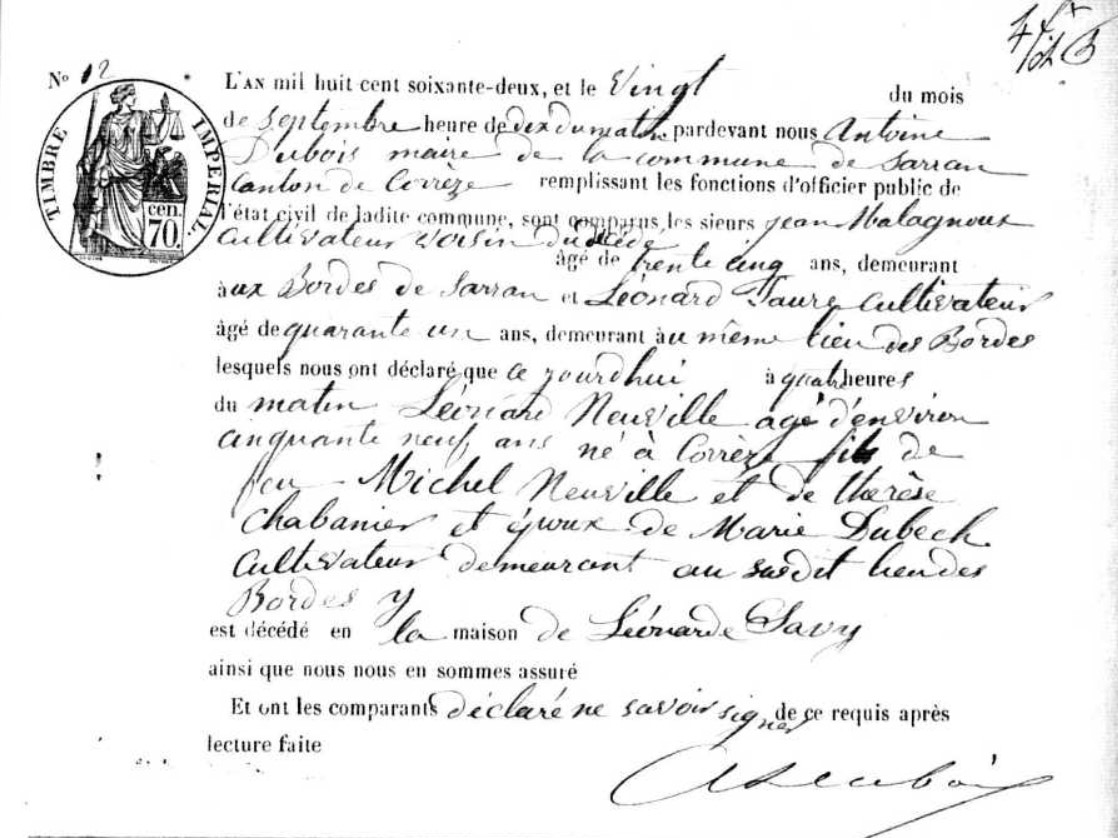 No 12
TIMBRE IMPERIAL.
cen.
70.
L'AN mil huit cent soixante-deux, et le Vingt du mois
de Septembre heure de dix du matin, pardevant nous Antoine
Dubois maire de la commune de Sarran
Canton de Corrèze remplissant les fonctions d'officier public de
l'état civil de ladite commune, sont comparus les sieurs jean Malagnoux
Cultivateur voisin du décédé
âgé de trente cinq ans, demeurant
à aux Bordes de Sarran et Léonard Faure Cultivateur
âgé de quarante un ans, demeurant à au même lieu des Bordes
lesquels nous ont déclaré que ce jourdhui à quatre heures
du matin Léonard Neuville agé d'environ
cinquante neuf ans né à Corrèze fils de
feu Michel Neuville et de thérèse
Chabanier et époux de Marie Dubech
Cultivateur demeurant au susdit lieu des
Bordes y
est décédé en la maison de Léonarde Savy
ainsi que nous nous en sommes assuré
Et ont les comparants déclaré ne savoir signer de ce requis après
lecture faite